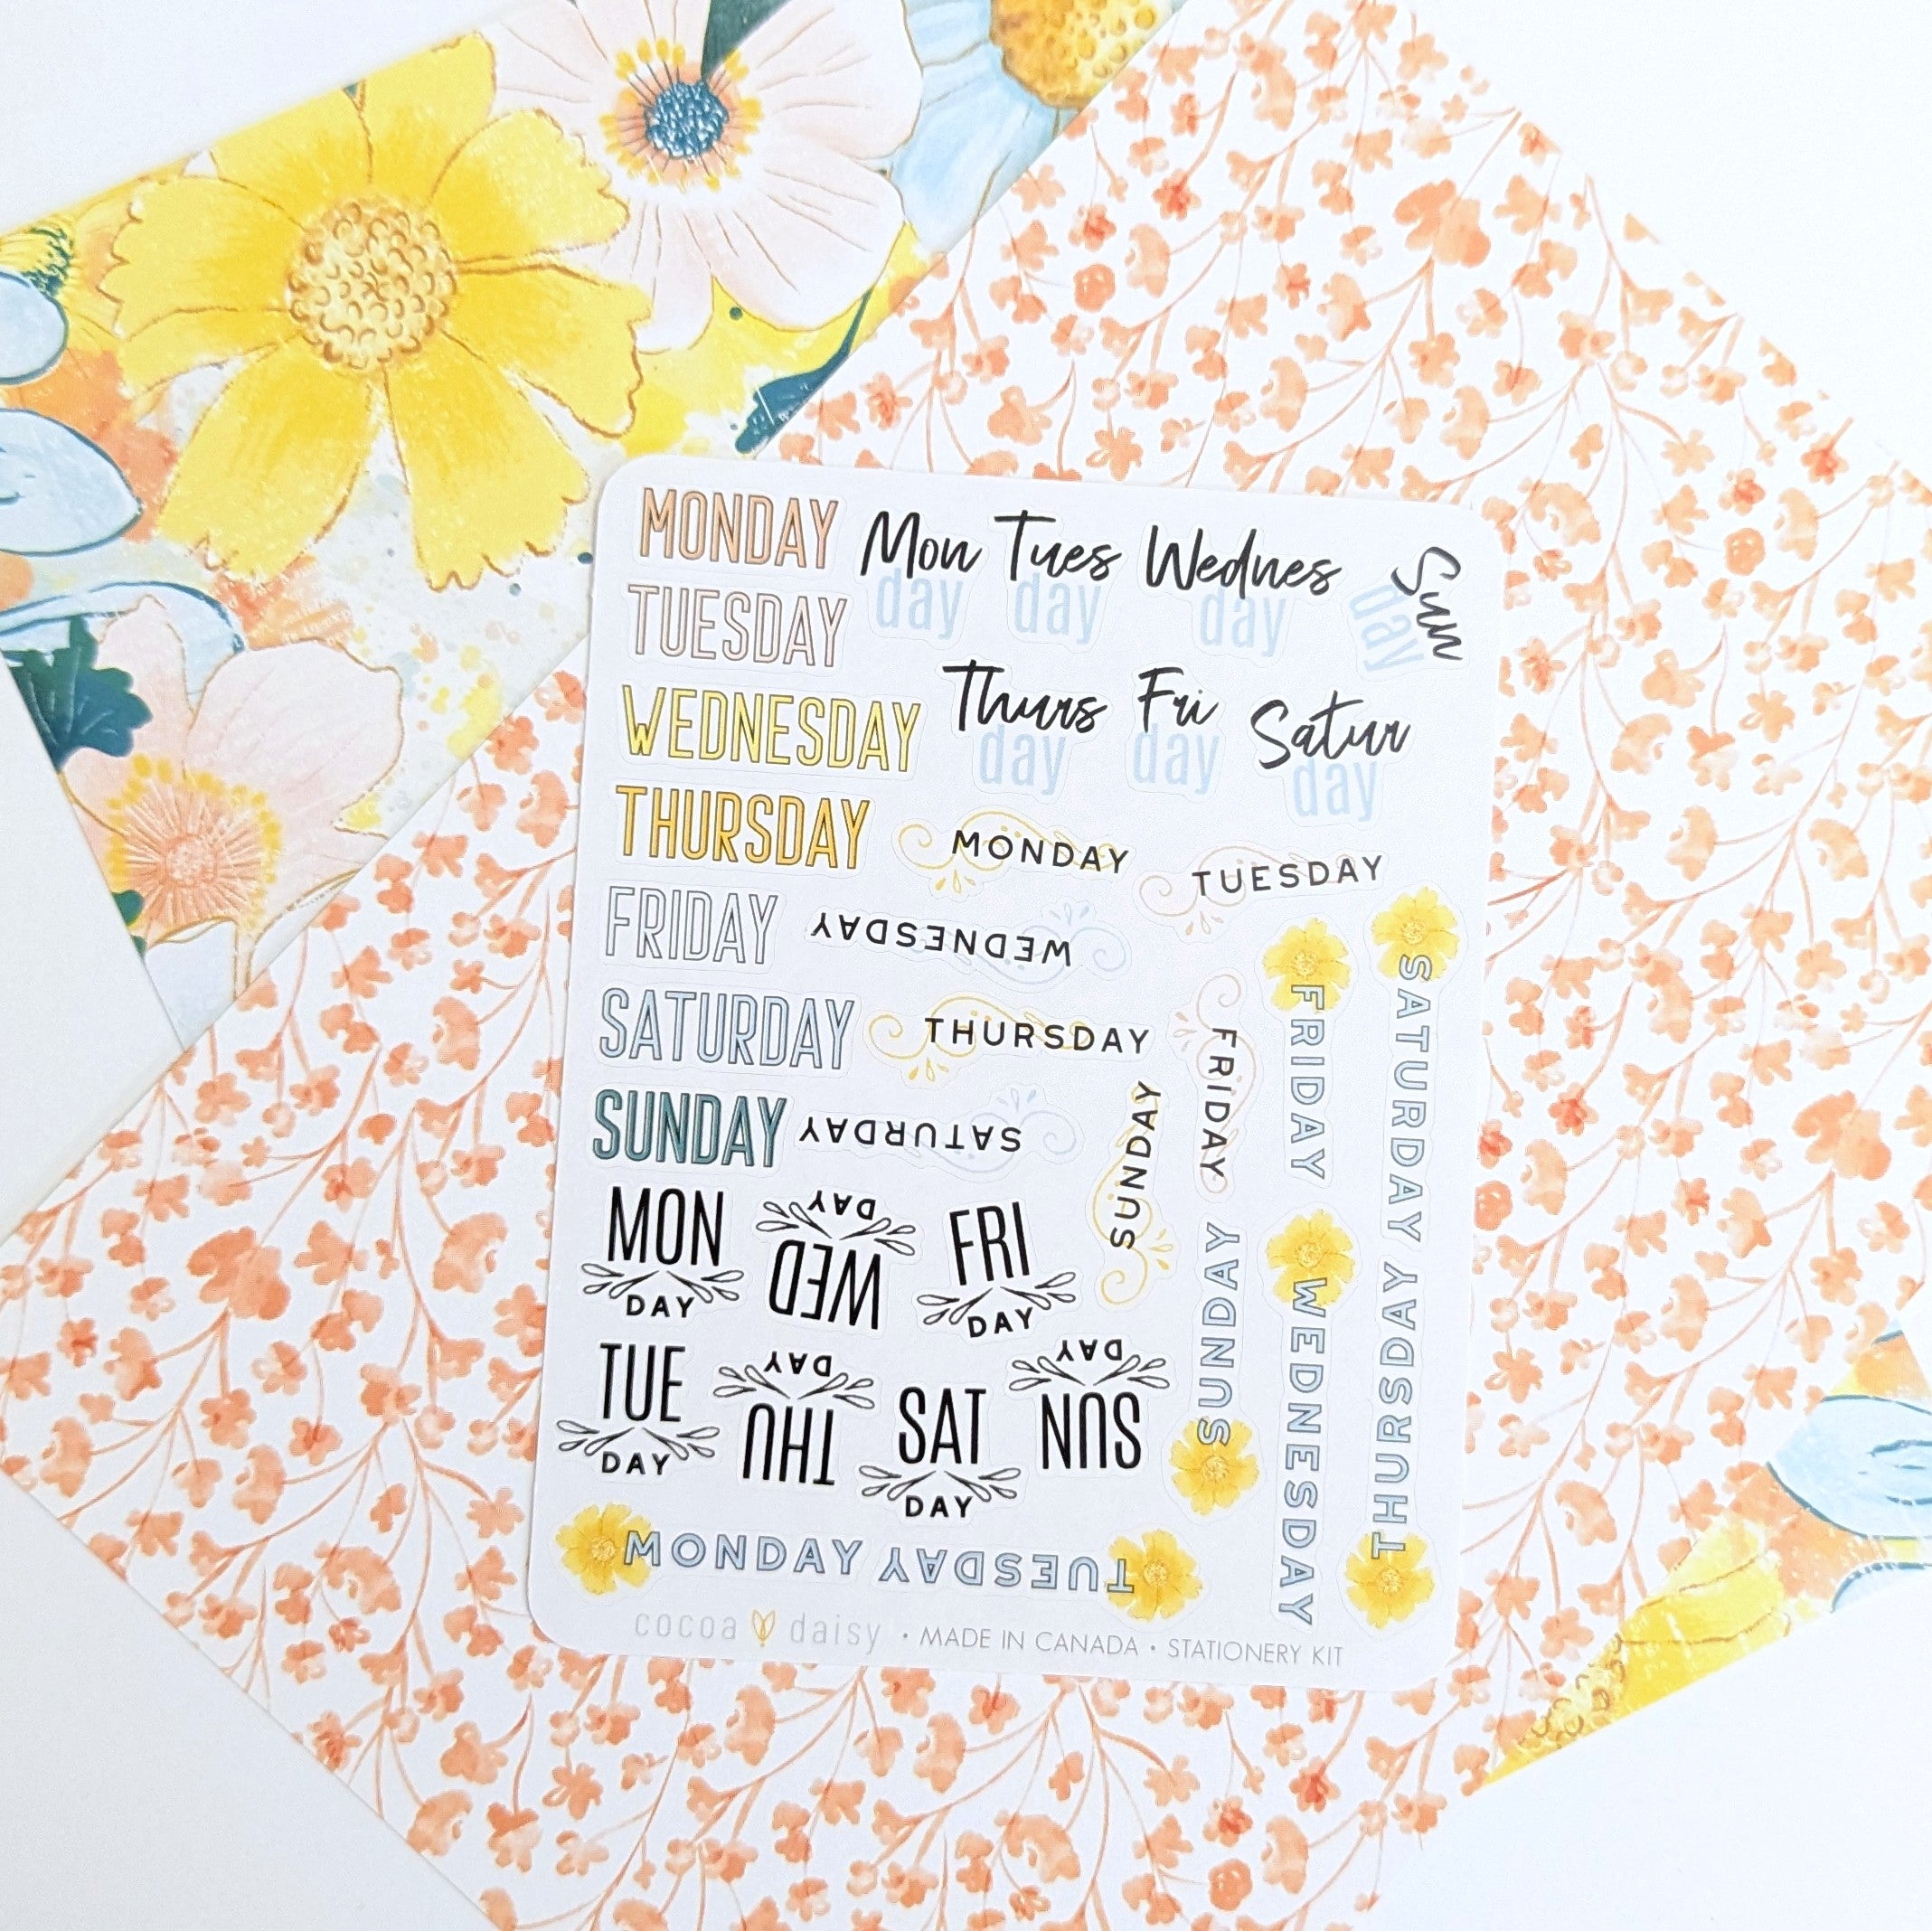 MONDAY
TUESDAY
WEDNESDAY
THURSDAY
FRIDAY
SATURDAY
SUNDAY
Mon day
Tues day
Wednes day
Sun day
Thurs day
Fri day
Satur day
MONDAY
TUESDAY
WEDNESDAY
THURSDAY
SATURDAY
SUNDAY
FRIDAY
FRIDAY
SATURDAY
SUNDAY
WEDNESDAY
THURSDAY
MON DAY
WED DAY
FRI DAY
TUE DAY
THU DAY
SAT DAY
SUN DAY
MONDAY
TUESDAY
cocoa daisy • MADE IN CANADA • STATIONERY KIT